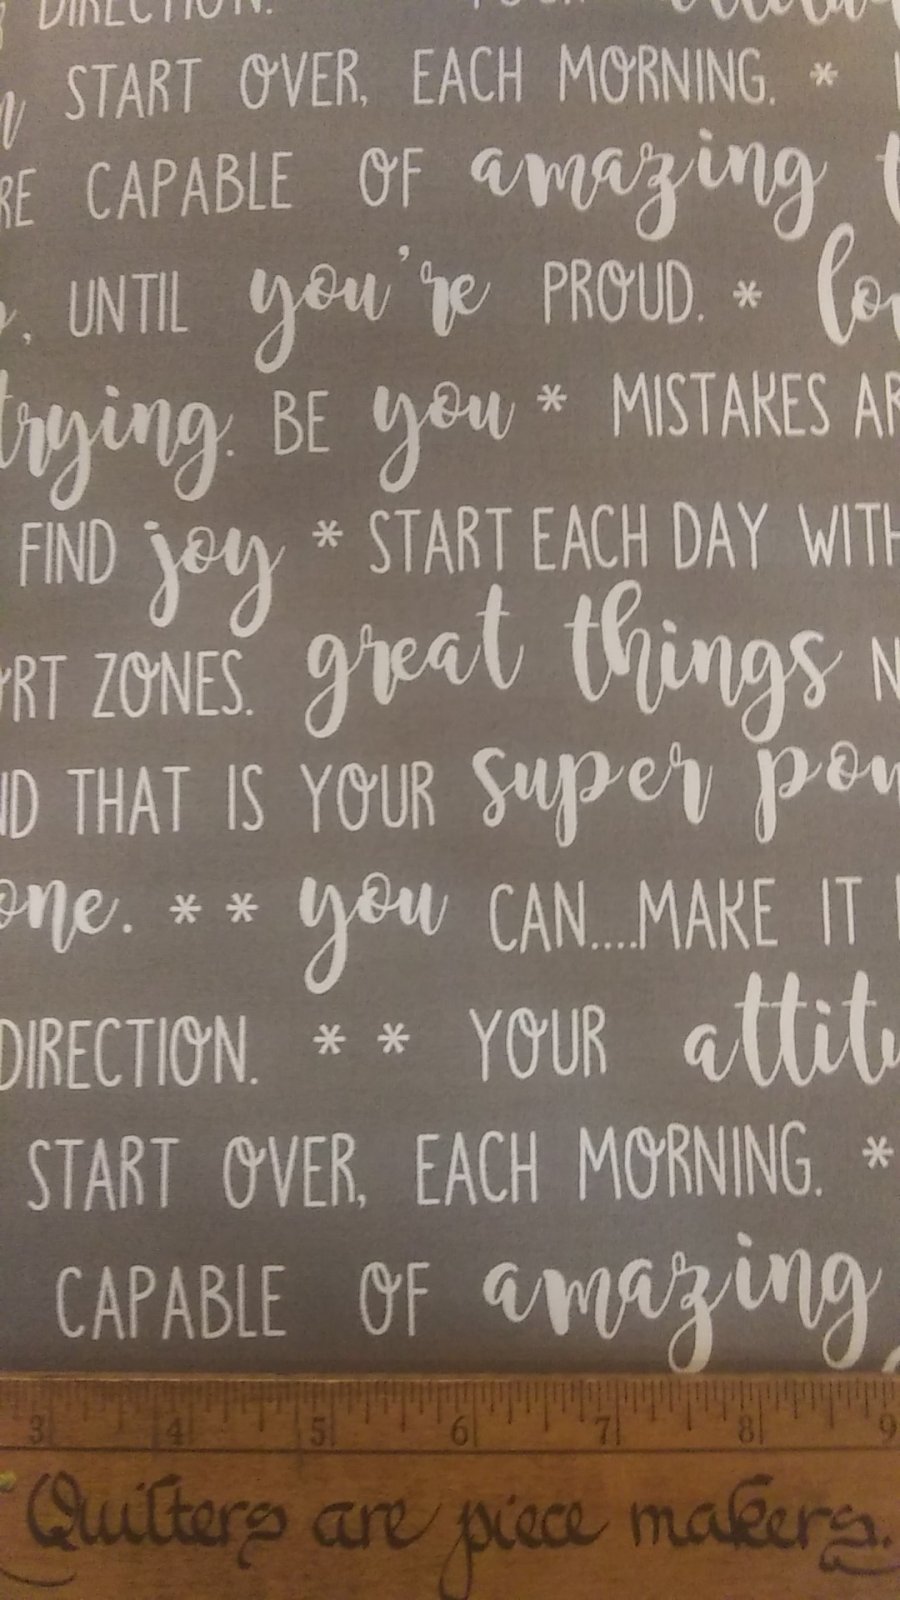 DIRECTION. YOUR
START OVER, EACH MORNING. *
RE CAPABLE OF amazing t
. UNTIL you're PROUD. * lo
trying. BE you * MISTAKES AR
FIND joy * START EACH DAY WITH
ORT ZONES. great things N
ND THAT IS YOUR super pow
one. * * you CAN....MAKE IT
DIRECTION. * * YOUR attitu
START OVER, EACH MORNING. *
CAPABLE OF amazing
3 4 5 6 7 8 9
Quilters are piece makers.